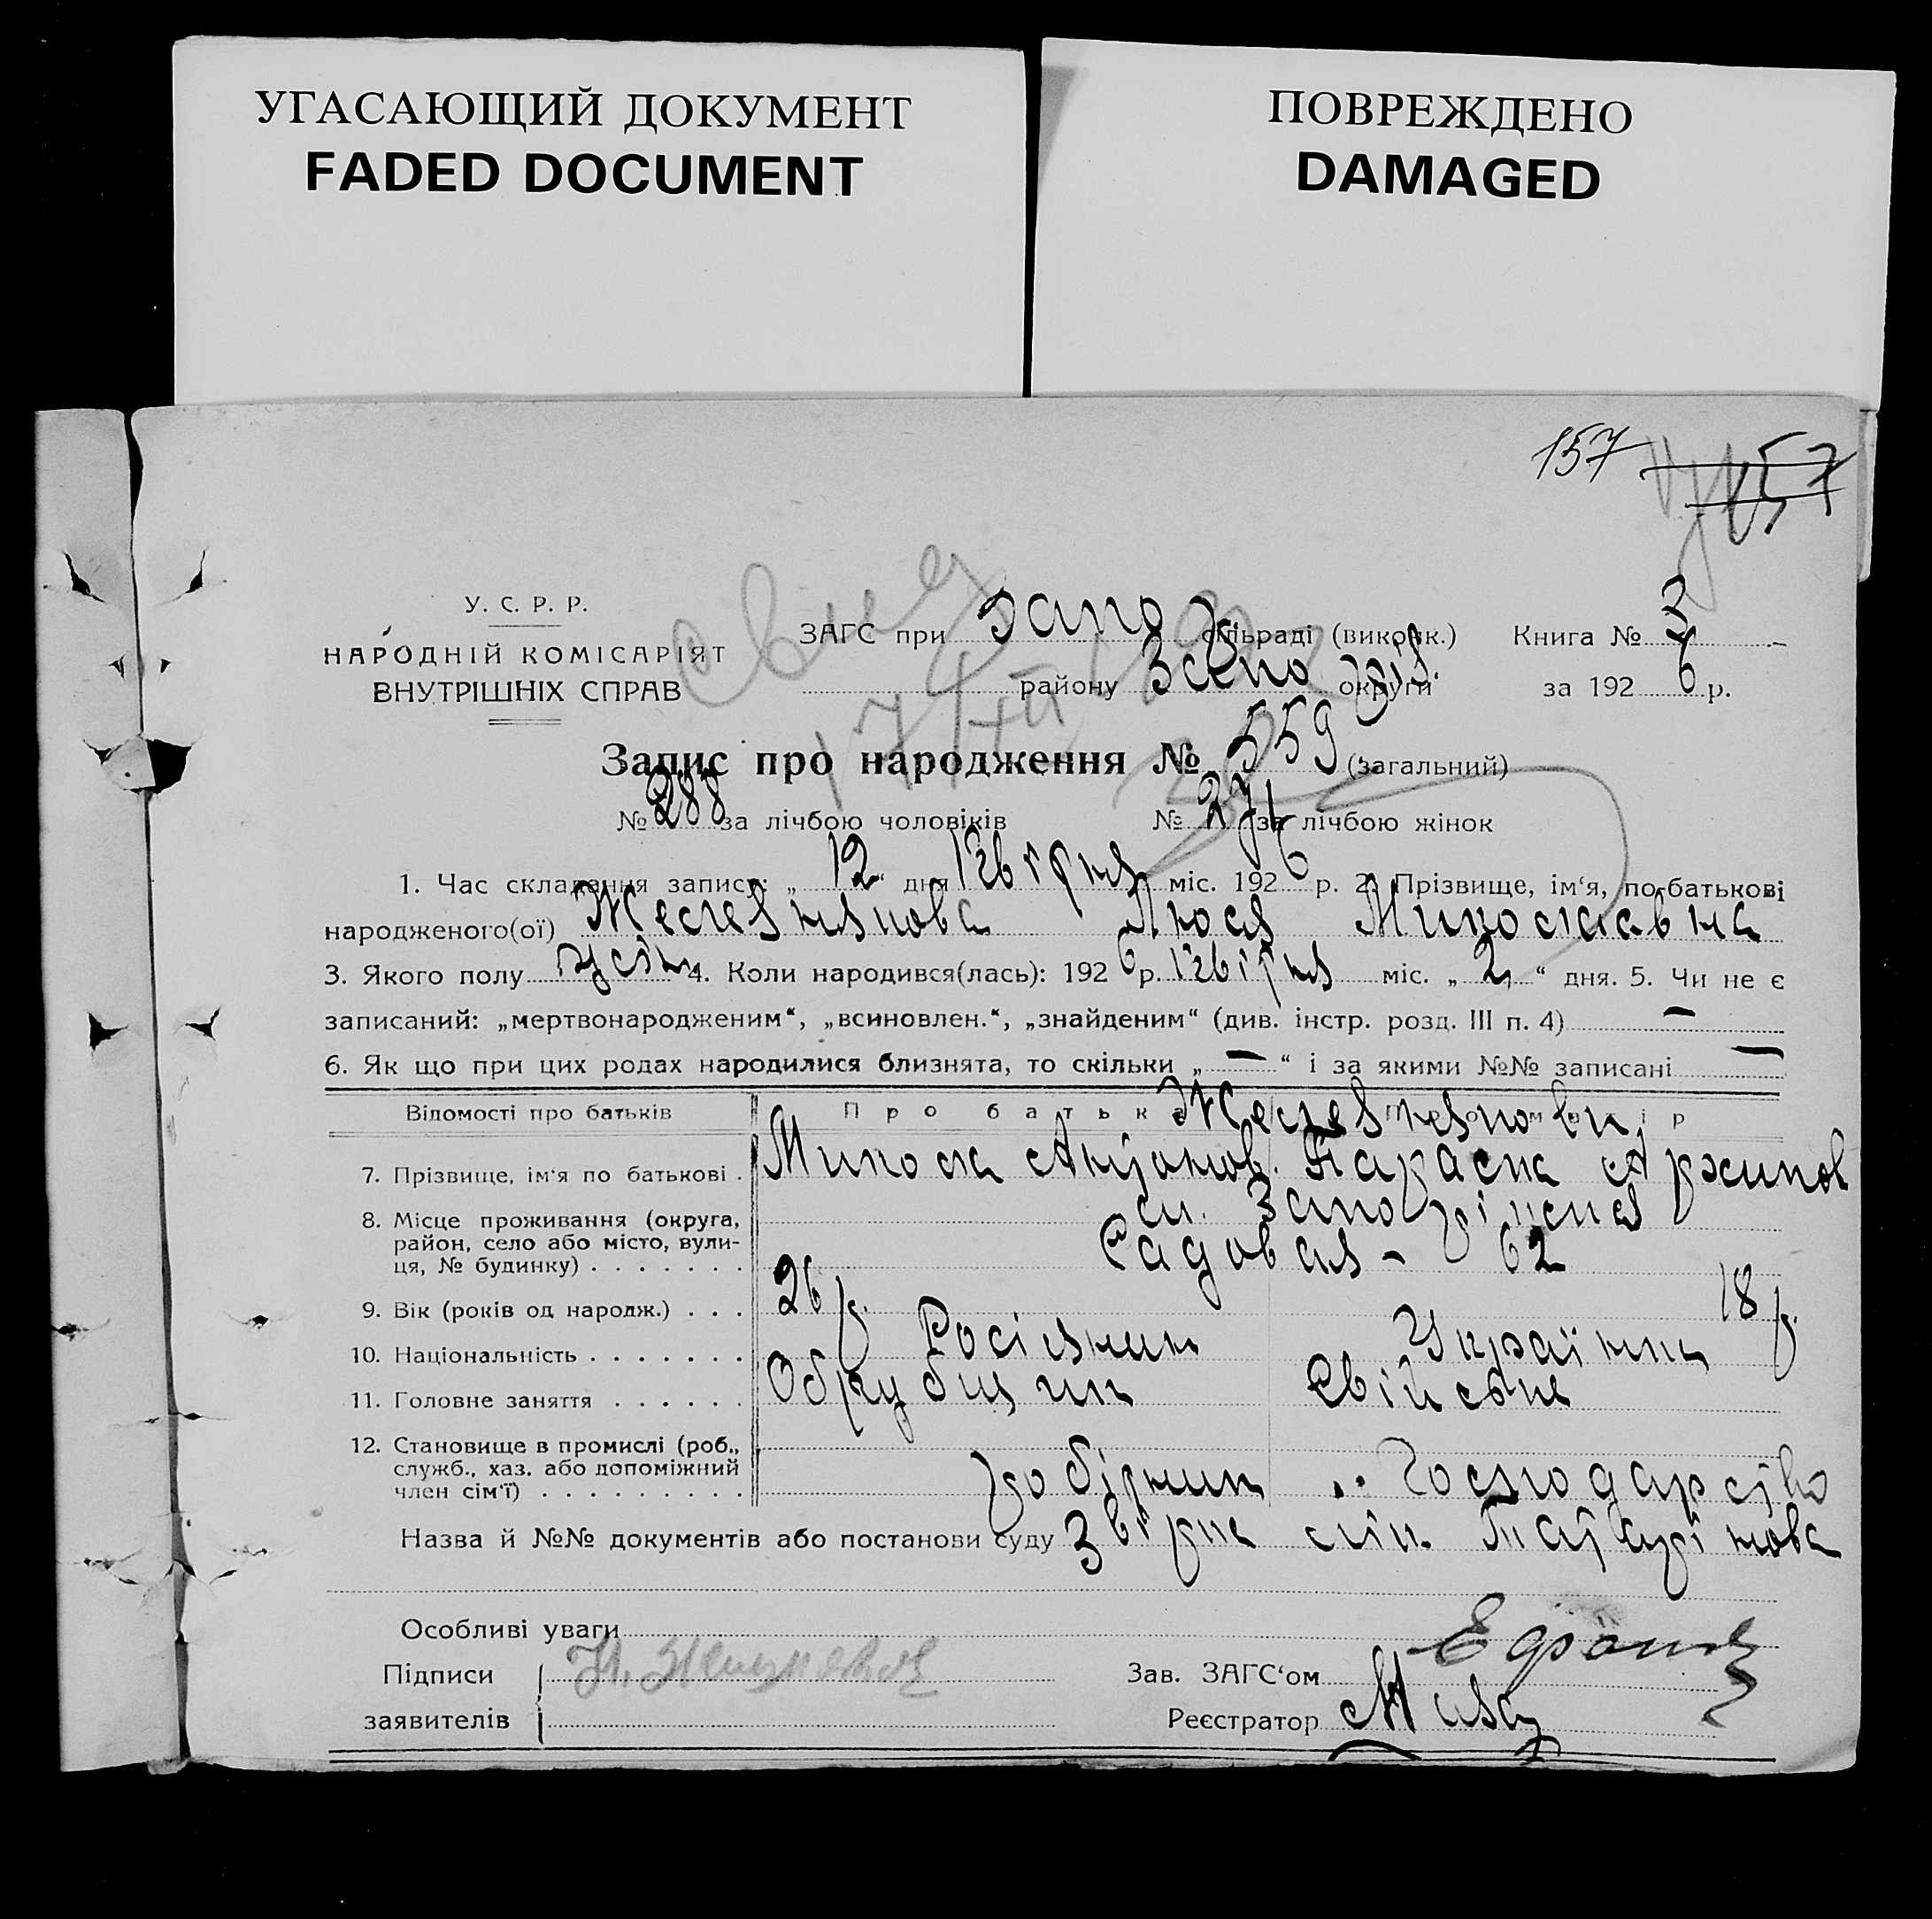 УГАСАЮЩИЙ ДОКУМЕНТ
FADED DOCUMENT
ПОВРЕЖДЕНО
DAMAGED
157 157
У. С. Р. Р.
НАРОДНІЙ КОМІСАРІЯТ
ВНУТРІШНІХ СПРАВ
ЗАГС при Запо сільраді (виконк.) Книга № 3
району Запо округи за 192 6 р.
Запис про народження № 559 (загальний)
№ 288 за лічбою чоловіків № 271 за лічбою жінок
1. Час складання запису: „ 12 “ дня Квітня міс. 192 6 р. 2. Прізвище, ім‘я, по-батькові
народженого(ої) Люся Миколаєвна
3. Якого полу жін. 4. Коли народився(лась): 192 6 р. Квітня міс. „ 2 “ дня. 5. Чи не є
записаний: „мертвонародженим“, „всиновлен.“, „знайденим“ (див. інстр. розд. III п. 4) —
6. Як що при цих родах народилися близнята, то скільки „ — “ і за якими №№ записані —
Відомості про батьків Про батька Про матір
7. Прізвище, ім‘я по батькові . Микола Антонов. Параска Архипов
8. Місце проживання (округа, м. Запоріжжя
район, село або місто, вули- Садовая - 62
ця, № будинку) . . . . . . .
9. Вік (років од народж.) . . . 26 р. 18 р.
10. Національність . . . . . . . Росіянин Українка
11. Головне заняття . . . . . . Обрубщик Свійське
12. Становище в промислі (роб.,
служб., хаз. або допоміжний робітник .. Господарство
член сім‘ї) . . . . . . . . . .
Назва й №№ документів або постанови суду
Особливі уваги
Підписи
заявителів
Зав. ЗАГС‘ом
Реєстратор